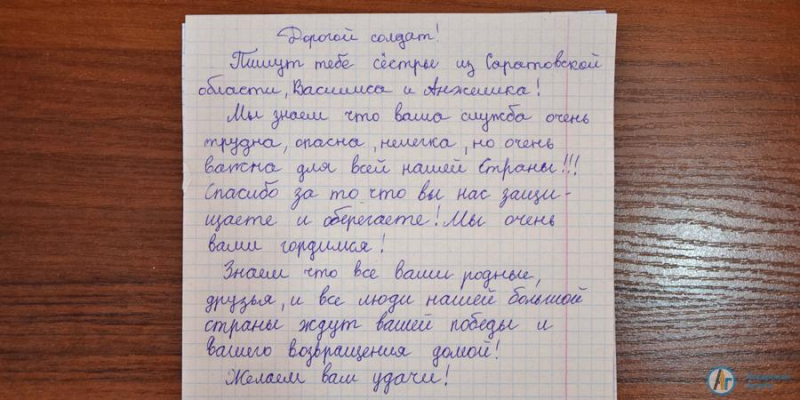 Дорогой солдат!
Пишут тебе сёстры из Саратовской
области, Василиса и Анжелика!
Мы знаем что ваша служба очень
трудна, опасна, нелегка, но очень
важна для всей нашей Страны!!!
Спасибо за то что вы нас защи-
щаете и оберегаете! Мы очень
вами гордимся!
Знаем что все ваши родные,
друзья, и все люди нашей большой
страны ждут вашей победы и
вашего возвращения домой!
Желаем вам удачи!